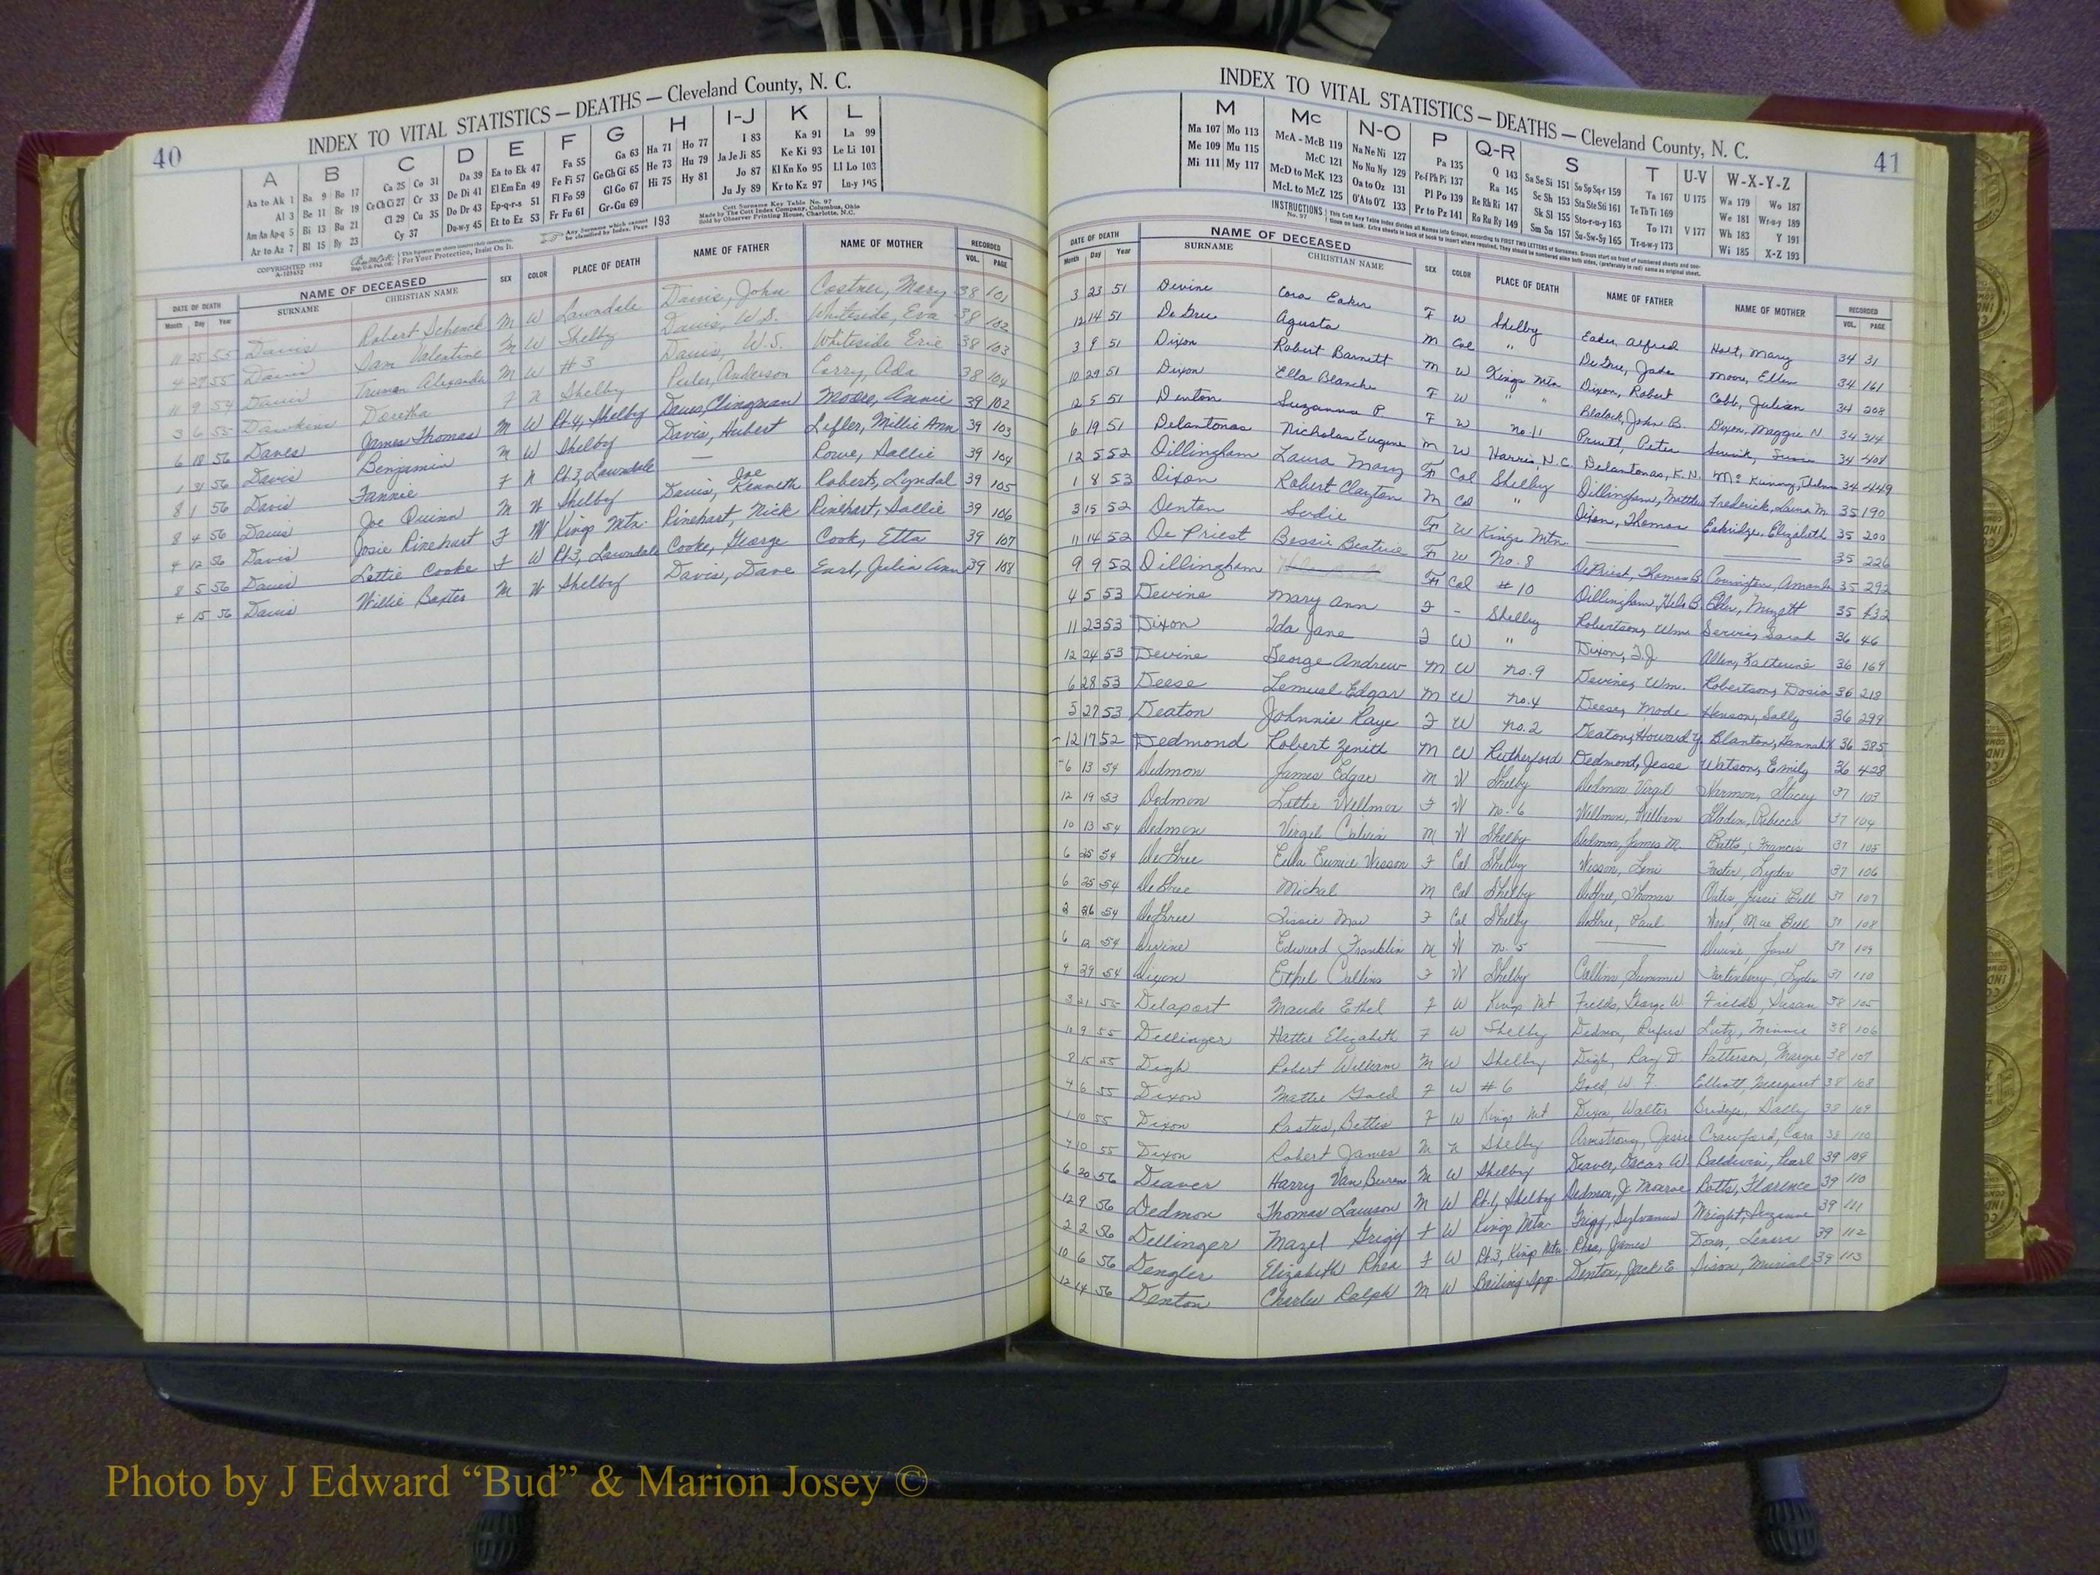 40
INDEX TO VITAL STATISTICS — DEATHS — Cleveland County, N. C.
A B C D E F G H I-J K L
Aa to Ak 1 Ba 9 Bo 17 Ca 25 Co 31 Da 39 Ea to Ek 47 Fa 55 Ga 63 Ha 71 Ho 77 I 83 Ka 91 La 99
Al 3 Be 11 Br 19 Ce Ch Ci 27 Cr 33 De Di 41 El Em En 49 Fe Fi 57 Ge Gh Gi 65 He 73 Hu 79 Ja Je Ji 85 Ke Ki 93 Le Li 101
Am An Ap-q 5 Bi 13 Bu 21 Cl 29 Cu 35 Do Dr 43 Ep-q-r-s 51 Fl Fo 59 Gl Go 67 Hi 75 Hy 81 Jo 87 Kl Kn Ko 95 Ll Lo 103
Ar to Az 7 Bl 15 By 23 Cy 37 Du-w-y 45 Et to Ez 53 Fr Fu 61 Gr-Gu 69 Ju Jy 89 Kr to Kz 97 Lu-y 105
COPYRIGHTED 1932
For Your Protection, Insist On It.
Any Surname which cannot be classified by Index, Page 193
Cott Surname Key Table No. 97
Made by The Cott Index Company, Columbus, Ohio
Sold by Observer Printing House, Charlotte, N.C.
DATE OF DEATH NAME OF DECEASED SEX COLOR PLACE OF DEATH NAME OF FATHER NAME OF MOTHER RECORDED
Month Day Year SURNAME CHRISTIAN NAME VOL. PAGE
11 25 55 Davis Robert Schenck M W Lawndale Davis, John Costner, Mary 38 101
4 27 55 Davis Sam Valentine M W Shelby Davis, W.S. Whiteside, Eva 38 102
11 9 54 Davis Truman Alexander M W #3 Davis, W.S. Whiteside Evie 38 103
3 6 55 Dawkins Doretha F N Shelby Peeler, Anderson Corry, Ada 38 104
6 18 56 Daves James Thomas M W Rt.4, Shelby Daves, Clingman Moore, Annie 39 102
1 31 56 Davis Benjamin M W Shelby Davis, Hubert Lefler, Millie Ann 39 103
8 1 56 Davis Fannie F N Rt.3, Lawndale — Rowe, Sallie 39 104
8 4 56 Davis Joe Quinn M W Shelby Davis, Joe Kenneth Roberts, Lyndal 39 105
4 12 56 Davis Josie Rinehart F W Kings Mtn. Rinehart, Nick Rinehart, Sallie 39 106
8 5 56 Davis Lettie Cooke F W Rt.3, Lawndale Cooke, George Cook, Etta 39 107
4 15 56 Davis Willie Baxter M W Shelby Davis, Dave Earl, Julia Ann 39 108
INDEX TO VITAL STATISTICS — DEATHS — Cleveland County, N. C.
41
M Mc N-O P Q-R S T U-V W-X-Y-Z
Ma 107 Mo 113 McA - McB 119 Na Ne Ni 127 Pa 135 Q 143 Sa Se Si 151 So Sp Sq-r 159 Ta 167 U 175 Wa 179 Wo 187
Me 109 Mu 115 McC 121 No Nu Ny 129 Pe-f Ph Pi 137 Ra 145 Sc Sh 153 Sta Ste Sti 161 Te Th Ti 169 We 181 Wr-u-y 189
Mi 111 My 117 McD to McK 123 Oa to Oz 131 Pl Po 139 Re Rh Ri 147 Sk Sl 155 Sto-r-u-y 163 To 171 V 177 Wh 183 Y 191
McL to McZ 125 O'A to O'Z 133 Pr to Pz 141 Ro Ru Ry 149 Sm Sn 157 Su-Sw-Sy 165 Tr-u-w-y 173 Wi 185 X-Z 193
INSTRUCTIONS No. 97
This Cott Key Table Index divides all Names into Groups, according to FIRST TWO LETTERS of Surnames.
DATE OF DEATH NAME OF DECEASED SEX COLOR PLACE OF DEATH NAME OF FATHER NAME OF MOTHER RECORDED
Month Day Year SURNAME CHRISTIAN NAME VOL. PAGE
3 23 51 Devine Cora Eaker F W Shelby Eaker, Alfred Holt, Mary 34 31
12 14 51 De Gree Agusta M Col " De Gree, Jade Moore, Ellen 34 161
3 9 51 Dixon Robert Barnett M W Kings Mtn Dixon, Robert Cobb, Julian 34 208
10 29 51 Dixon Ella Blanche F W " " Blalock, John B. Dixon, Maggie N 34 314
12 5 51 Denton Suzanna P. F W No. 11 Pruett, Peter 34 404
6 19 51 Delantonas Nicholas Eugene M W Harris, N.C. Delantonas, K.N. 34 449
12 5 52 Dillingham Laura Mary F Col Shelby Dillingham, Matthew Frederick, Laura M. 35 190
1 8 53 Dixon Robert Clayton M Col " Dixon, Thomas Eskridge, Elizabeth 35 200
3 15 52 Denton Sudie F W Kings Mtn. — — 35 226
11 14 52 De Priest Bessie Beatrice F W No. 8 DePriest, Thomas B. Covington, Amanda 35 292
9 9 52 Dillingham F Col #10 Dillingham, 35 432
4 5 53 Devine Mary Ann F - Shelby Robertson, Wm. Servis, Sarah 36 46
11 23 53 Dixon Ida Jane F W " Dixon, T.J. Allen, Katherine 36 169
12 24 53 Devine George Andrew M W No. 9 Devine, Wm. Robertson, Dosia 36 218
6 28 53 Deese Lemuel Edgar M W No. 4 Deese, Mode Henson, Sally 36 299
5 27 53 Deaton Johnnie Kaye F W No. 2 Deaton, Howard Y. Blanton, Hannah 36 385
12 17 52 Dedmond Robert Zenith M W Rutherford Dedmond, Jesse Watson, Emily 36 428
6 13 54 Dedmon James Edgar M W Shelby Dedmon Virgil Harmon, Stacey 37 103
12 19 53 Dedmon Lottie Wellmon F W No. 6 Wellmon, William Gladen, Rebecca 37 104
10 13 54 Dedmon Virgil Calvin M W Shelby Dedmon, James M. Botts, Francis 37 105
6 25 54 DeGree Eula Eunice Wesson F Col Shelby Wesson, Foster, Lyden 37 106
6 25 54 DeGree Michal M Col Shelby DeGree, Thomas Jessie Bell 37 107
2 26 54 DeGree Lissie Mae F Col Shelby DeGree, Paul Mae Bell 37 108
6 12 54 Devine Edward Franklin M W No. 5 — Devine, Jane 37 109
4 29 54 Dixon Ethel Collins F W Shelby Collins, Summie Lyden 37 110
3 21 55 Delaport Maude Ethel F W Kings Mt Fields, George W. Fields, Susan 38 105
10 9 55 Dellinger Hattie Elizabeth F W Shelby Dedmon, Rufus Lutz, Minnie 38 106
8 15 55 Digh Robert William M W Shelby Digh, Ray D. Patterson, Margie 38 107
4 6 55 Dixon Mattie Gold F W #6 Gold, W. F. Elliott, Margaret 38 108
1 10 55 Dixon Rastus, Bettis F W Kings Mt Dixon Walter Bridges, Sally 38 109
4 10 55 Dixon Robert James M N Shelby Armstrong, Jessie Crawford, Cora 38 110
6 20 56 Deaver Harry Van Buren M W Shelby Deaver, Oscar W. Baldwin, Pearl 39 109
12 9 56 Dedmon Thomas Lawson M W Rt.1, Shelby Dedmon, J. Monroe Botts, Florence 39 110
2 2 56 Dellinger Mazel Grigg F W Kings Mtn. Grigg, Sylvanus Wright, Suzanne 39 111
10 6 56 Dengler Elizabeth Rhea F W Rt.3, Kings Mtn. Rhea, James Lenora 39 112
12 14 56 Denton Charles Ralph M W Boiling Spgs Denton, Jack E. Sison, Murial 39 113
Photo by J Edward “Bud” & Marion Josey ©